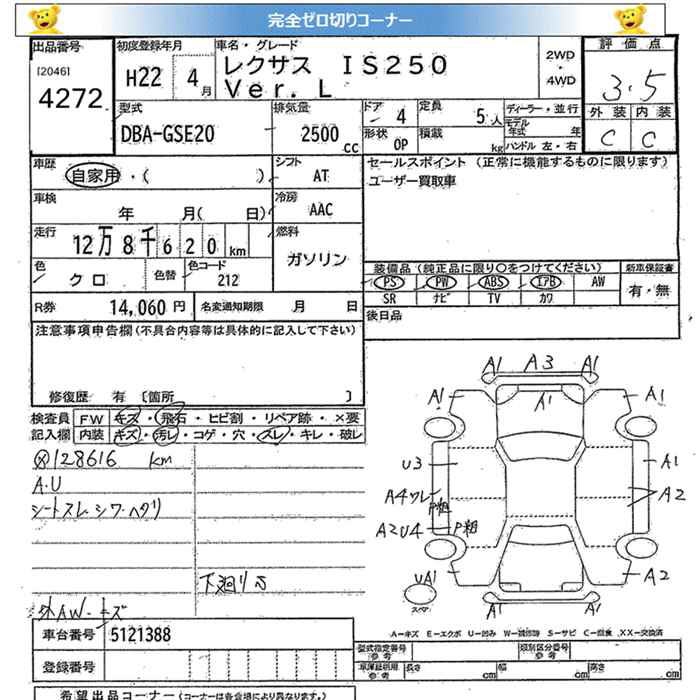 完全ゼロ切りコーナー
出品番号 初度登録年月 車名・グレード 評価点
[2046] H22 4月 レクサス IS250 2WD・4WD 3.5
4272 Ver. L
型式 排気量 ドア 4 定員 5人 ディーラー・並行 外装 内装
DBA-GSE20 2500cc 形状 OP 積載 kg モデル年式 年 C C
ハンドル 左・右
車歴 自家用・( ) シフト AT セールスポイント (正常に機能するものに限ります)
車検 年 月( 日) 冷房 AAC ユーザー買取車
走行 12万8千620km 燃料 ガソリン
色 クロ 色替 色コード 212 装備品 (純正品に限り○をつけてください) 新車保証書
PS PW ABS エアB AW 有・無
SR ナビ TV カワ
R券 14,060円 名変通知期限 月 日 後日品
注意事項申告欄(不具合内容等は具体的に記入して下さい)
修復歴 有 〔箇所 〕
検査員 FW キズ・飛石・ヒビ割・リペア跡・×要
記入欄 内装 キズ・汚レ・コゲ・穴・スレ・キレ・破レ
128616 km
A.U
シートスレ.シワ.ヘタリ
下廻りS
外AW-キズ
A1 A3 A1
A1 A1 A1
U3 A1
A4ワレ P粗 A2
A2U4 P粗
UA1 A2
スペア A1 A1
A-キズ E-エクボ U-凹み W-補修跡 S-サビ C-腐食 XX-交換済
車台番号 5121388 型式指定番号 参考 類別区分番号 参考
登録番号 車庫証明用 参考 長さ cm 幅 cm 高さ cm
希望出品コーナー (コーナーは各会場により異なります。)